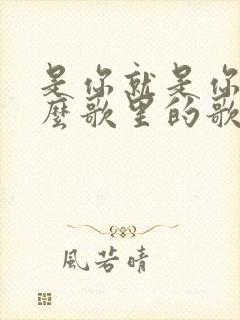 是你就是你
麼歌里的歌
風若晴